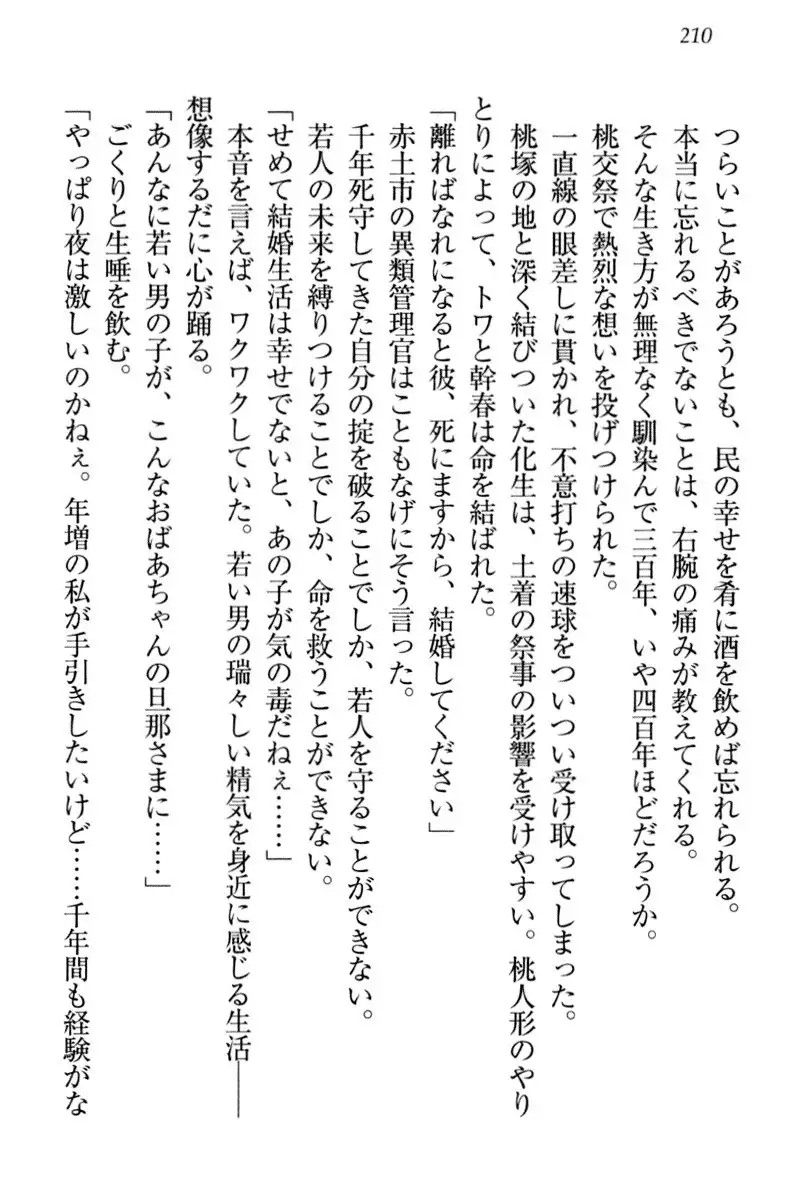 210
つらいことがあろうとも、民の幸せを肴に酒を飲めば忘れられる。
本当に忘れるべきでないことは、右腕の痛みが教えてくれる。
そんな生き方が無理なく馴染んで三百年、いや四百年ほどだろうか。
桃交祭で熱烈な想いを投げつけられた。
一直線の眼差しに貫かれ、不意打ちの速球をついつい受け取ってしまった。
桃塚の地と深く結びついた化生は、土着の祭事の影響を受けやすい。桃人形のやり
とりによって、トワと幹春は命を結ばれた。
「離ればなれになると彼、死にますから、結婚してください」
赤土市の異類管理官はこともなげにそう言った。
千年死守してきた自分の掟を破ることでしか、若人を守ることができない。
若人の未来を縛りつけることでしか、命を救うことができない。
「せめて結婚生活は幸せでないと、あの子が気の毒だねぇ……」
本音を言えば、ワクワクしていた。若い男の瑞々しい精気を身近に感じる生活――
想像するだに心が踊る。
「あんなに若い男の子が、こんなおばあちゃんの旦那さまに……」
ごくりと生唾を飲む。
「やっぱり夜は激しいのかねぇ。年増の私が手引きしたいけど……千年間も経験がな